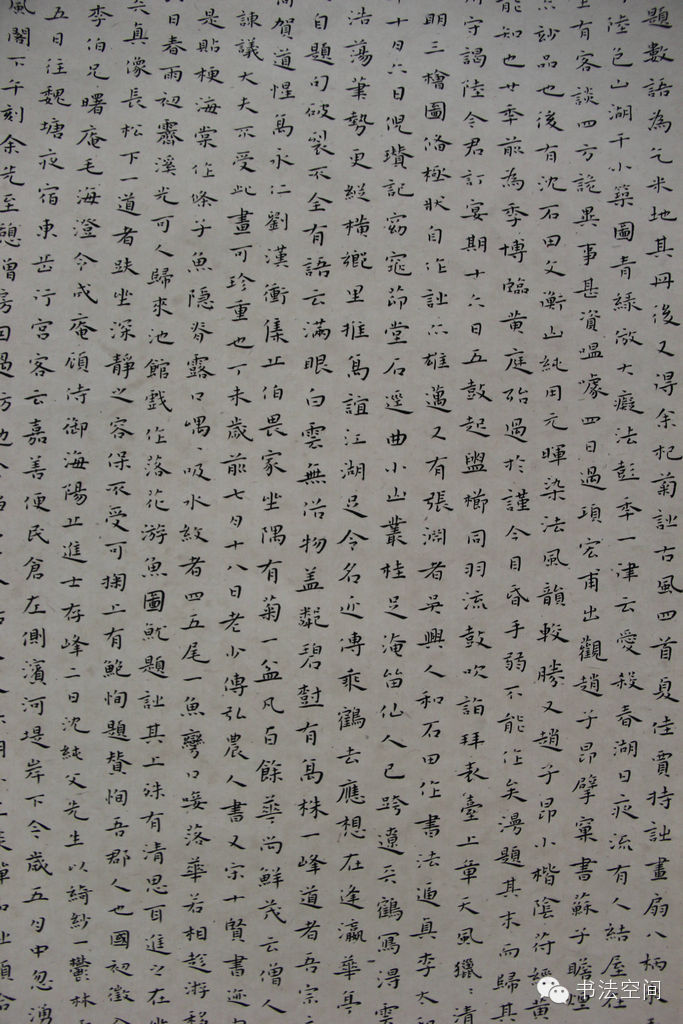 題數語為乞米地其丹後又得余杞菊詠古風四首夏佳賈持詠畫扇八柄
陸色山湖干小築圖青綠倣大癡法彭年一律云愛殺春湖日夜流有人結屋在
有客談四方詭異事甚資嗢噱四日過項宏甫出觀趙子昂擘窠書蘇子瞻煙
妙品也後有沈石田文衡山純用元暉染法風韻較勝又趙子昂小楷陰符經黃
能知也廿年前為季博臨黃庭殆過於謹今目昏手弱不能作矣漫題其末而歸其
守謁陸令君訂宴期十六日五鼓起盥櫛同羽流鼓吹詣拜表臺上章天風獵：清
明三檜圖脩極狀自作詠亦雄邁又有張淵者吳興人和石田作書法逼真李太
十月六日倪瓚記窈窕茆堂石逕曲小山叢桂足淹留仙人已跨遼天鶴寫得雲
浩蕩筆勢更縱橫鄉里推萬誼江湖足令名近傳乘鶴去應想在逢瀛華亭
自題句破裂不全有語云滿眼白雲無俗物盖粼碧對有萬株一峰道者吾宗
賀道惺萬永仁劉漢衝集止伯畏家坐隅有菊一盆凡百餘華尚鮮茂云僧人
諫議大夫不受此畫可珍重也丁未歲前七月十八日老少傳弘農人書又宋十賢書迹
是貼梗海棠作條子魚隱脊露口喁：吸水紋者四五尾一魚彎口唼落華若相趁游移
日春雨初霽溪光可人歸來池館戲作落花游魚圖魷題詠其上殊有清思百進之在
真像長松下一道者趺坐深靜之容保不受可掬上有鮑恂題贊恂吾郡人也國初徵入
李伯兄曙庵毛海澄令咸庵頌侍御海陽止進士存峰二日沈純父先生以綺紗一鬱林
五日往魏塘夜宿東岳行宮客云嘉善便民倉左側濱河堤岸下今歲五月中忽湧
風閣下午刻余先至憩僧房因過方
书法空间